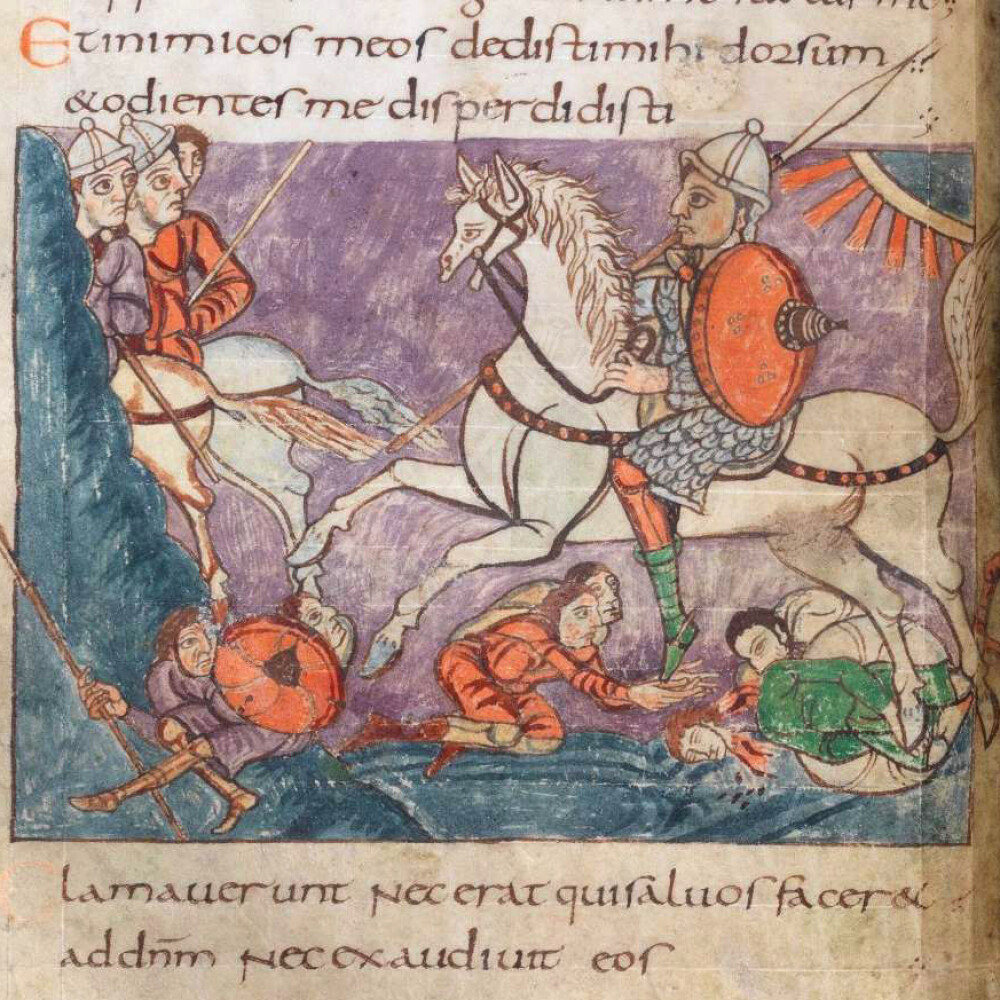 Et inimicos meos dedisti mihi dorsum
& odientes me disperdidisti
lamauerunt nec erat qui saluos facer&
ad dn̄m nec exaudiuit eos